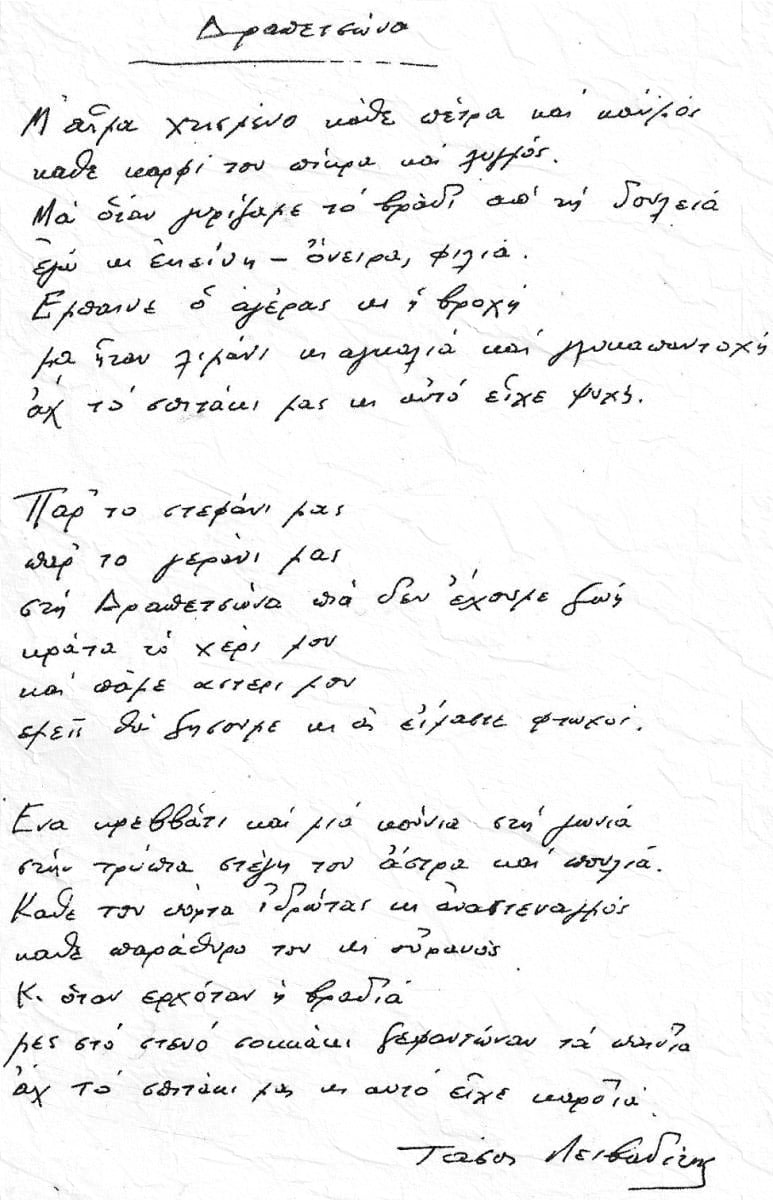 Δραπετσώνα
Μ' αἷμα χτισμένο κάθε πέτρα καί καϋμός
καθε καρφί του πίκρα καί λυγμός.
Μά ὅταν γυρίζαμε τό βράδι ἀπ' τή δουλειά
ἐγώ κι ἐκείνη – ὄνειρα, φιλιά.
Εμπαινε ὁ ἀγέρας κι ἡ βροχή
μα ἦταν λιμάνι κι αγκαλιά καί γλυκαπαντοχή
ἀχ τό σπιτάκι μας κι αὐτό εἶχε ψυχή.
Παρ' το στεφάνι μας
παρ' το γεράνι μας
στή Δραπετσώνα πιά δεν ἔχουμε ζωή
κράτα τό χέρι μου
καί πάμε αστερι μου
εμεῖς θά ζησουμε κι ἄς εἴμαστε φτωχοί.
Ενα κρεββάτι καί μιά κούνια στή γωνιά
στήν τρύπα στέγη του ἄστρα καί πουλιά.
Καθε του πόρτα ἱδρώτας κι ἀναστεναγμός
καθε παράθυρο του κι οὐρανός
Κ. ὅταν ερχόταν ἡ βραδιά
μες στό στενό σοκκάκι ξεφαντώναν τά παιδιά
ἀχ τό σπιτάκι μας κι αυτό εἶχε καρδιά.
Τάσος Λειβαδίτης